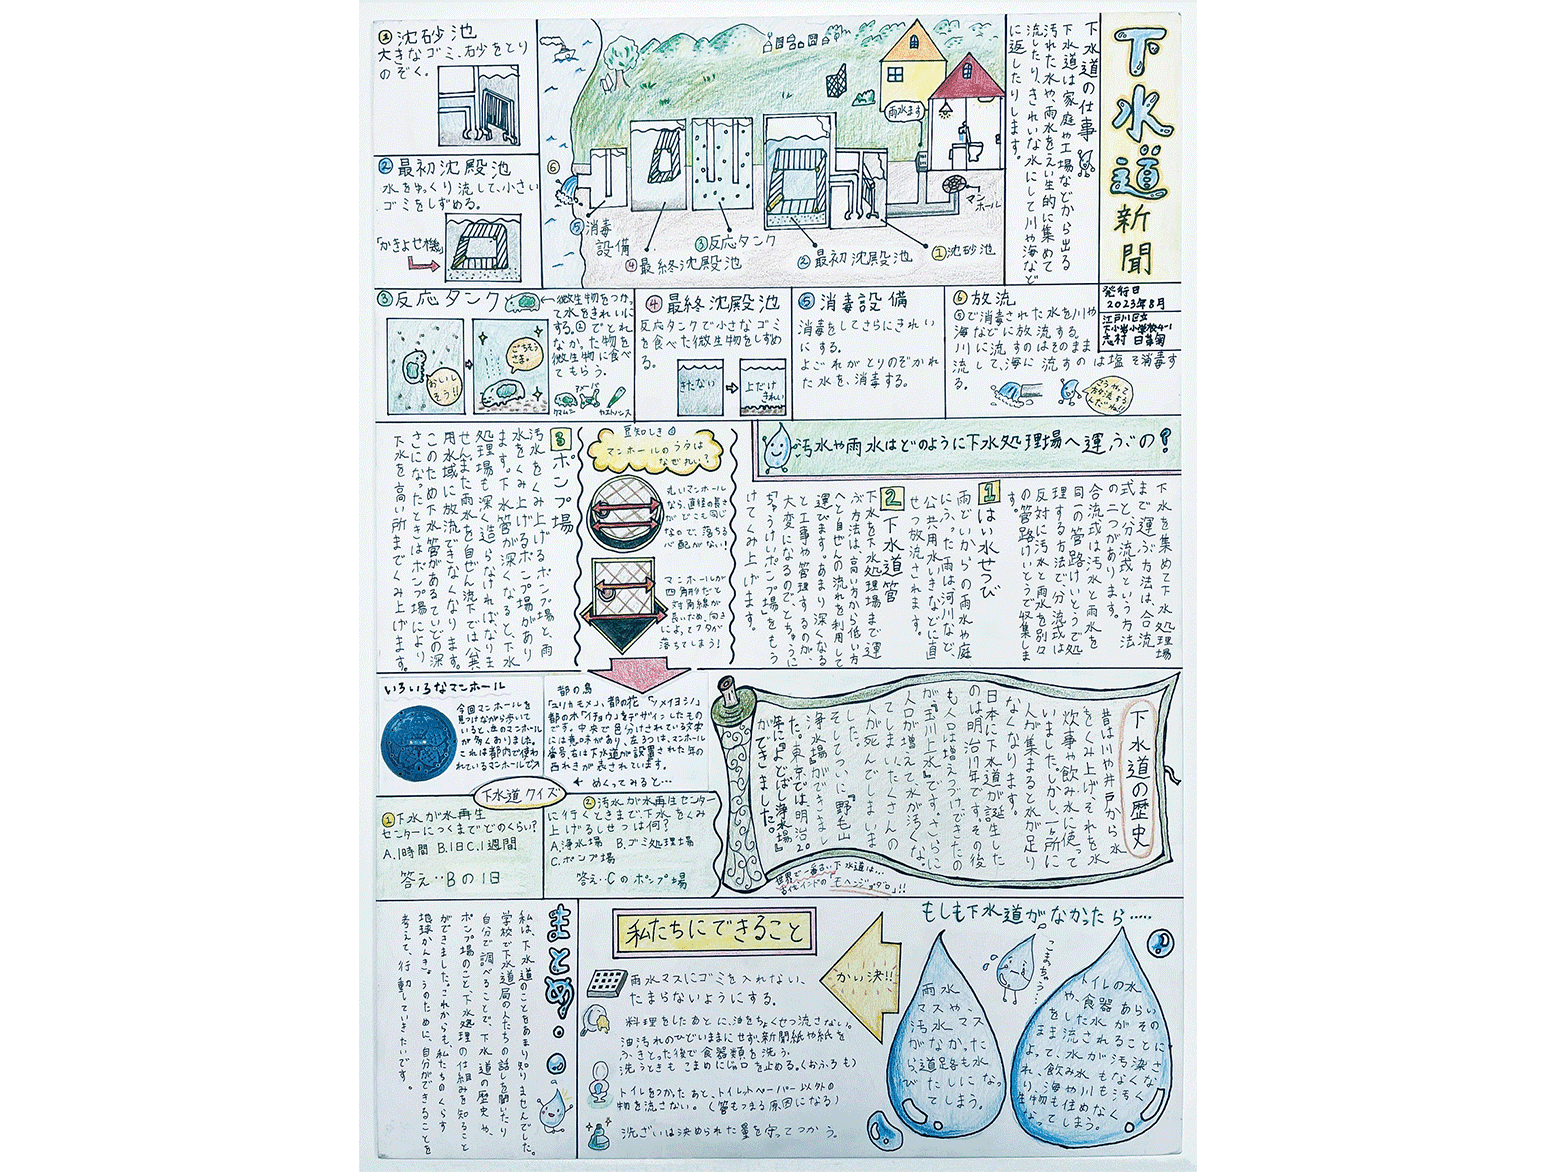 下水道新聞
発行日
2023年8月
江戸川区立
下小岩小学校4-1
志村 日葵菊
下水道の仕事
下水道は家庭や工場などから出る
汚れた水や、雨水をえい生的に集めて
流したり、きれいな水にして川や海など
に返したりします。
雨水ます
マン
ホール
①沈砂池
②最初沈殿池
③反応タンク
④最終沈殿池
⑤消毒
設備
⑥
①沈砂池
大きなゴミ、砂をとり
のぞく。
②最初沈殿池
水をゆっくり流して、小さい
ゴミをしずめる。
「かきよせ機」
③反応タンク
微生物をつかっ
て水をきれいに
する。②でとれ
なかった物を
微生物に食べ
てもらう。
おいし
そう!!
ごちそう
さま。
クマムシ
アメーバ
④最終沈殿池
反応タンクで小さなゴミ
を食べた微生物をしずめ
る。
きたない
上だけ
きれい
⑤消毒設備
消毒をしてさらにきれい
にする。
よごれがとりのぞかれ
た水を、消毒する。
⑥放流
⑤で消毒された水を川や
海などに放流する。
川に流すのはそのまま
流して、海に流すのは塩そ消毒す
る。
汚水や雨水はどのように下水処理場へ運ぶの?
下水を集めて下水処理場
まで運ぶ方法は、合流
式と、分流式という方法
の二つがあります。
合流式は汚水と雨水を
同一の管路けいとうで処
理する方法で分流式は
反対に汚水と雨水を別々
の管路けいとうで収集しま
す。
1はい水せつび
雨どいからの雨水や庭
にふった雨は河川など、
公共用水いきなどに直
せつ放流されます。
2下水道管
下水を下水処理場まで運
ぶ方法は、高い方から低い方
へと自ぜんの流れを利用して
運びます。あまり深くなる
と工事や管理するのが、
大変になるので、とちゅうに
「ちゅうけいポンプ場」をもう
けてくみ上げます。
豆知しき
マンホールのうらは
なぜ丸い?
丸いマンホール
なら、直径の長さ
がどこも同じ
なので、落ちる
心配がない!
マンホールが
四角形だと
対角線が
長いため、向き
によってフタが
落ちてしまう!
3ポンプ場
汚水をくみ上げるポンプ場と、雨
水をくみ上げるポンプ場があり
ます。下水管が深くなると、下水
処理場も深く造らなければなりま
せん。また雨水を自ぜん流下では公共
用水域に放流できなくなります。
このため下水管があるていどの深
さになったときはポンプ場により
下水を高い所までくみ上げます。
いろいろなマンホール
今回マンホールを
見つけながら歩いて
いると、このマンホール
が多くありました。
これは都内で使わ
れているマンホールです
都の鳥
「ユリカモメ」、都の花「ソメイヨシノ」
都の木「イチョウ」をデザインしたもの
です。中央で色分けされている文字
には意味があり、左3つは、マンホール
番号、右は下水道が設置された年の
西れきが表されています。
めくってみると…
下水道クイズ
①下水が水再生
センターにつくまでどのくらい?
A.1時間 B.1日 C.1週間
答え‥Bの1日
②汚水が水再生センター
に行くときまで、下水をくみ
上げるしせつは何?
A.浄水場 B.ゴミ処理場
C.ポンプ場
答え‥Cのポンプ場
下水道の歴史
昔は川や井戸から水
をくみ上げ、それを
炊事や飲み水に使って
いました。しかし、一ヶ所に
人が集まると水が足り
なくなります。
日本に下水道が誕生した
のは明治17年です。その後
も人口は増えつづけ、できたの
が『玉川上水』です。さらに
人口が増えて、水が汚くな
てしまい、たくさんの
人が死んでしまいま
した。
そしてついに『野毛山
浄水場』ができまし
た。東京では、明治20
年に『よどばし浄水場』
ができました。
世界で一番古い下水道は…
古代インドの「モヘンジョダロ」!!
もしも下水道がなかったら……
トイレの水
や、食器あらい
をした水がその
まま流されることに
よって、水が汚染さ
れ、飲み水もなくな
り、海や川も汚く
生物も住めなく
なってしまう。
こまっちゃう…
雨水
マスや、
汚水マス
がなかった
ら道路も水
びたしになっ
てしまう。
かい決!!
私たちにできること
雨水マスにゴミを入れない、
たまらないようにする。
料理をしたあとに、油をちょくせつ流さない。
油汚れのひどいままにせず、新聞紙や紙を
ふきとった後で食器類を洗う。
洗うときもこまめにじゃ口を止める。(おふろも)
トイレをつかったあと、トイレットペーパー以外の
物を流さない。(管もつまる原因になる)
洗ざいは決められた量を守ってつかう。
まとめ
私は、下水道のことをあまり知りませんでした。
学校で下水道局の人たちの話しを聞いたり
自分で調べることで、下水道の歴史や、
ポンプ場のこと、下水処理の仕組みを知ること
ができました。これからも、私たちのくらす
地球かんきょうのために、自分ができることを
考えて、行動していきたいです。